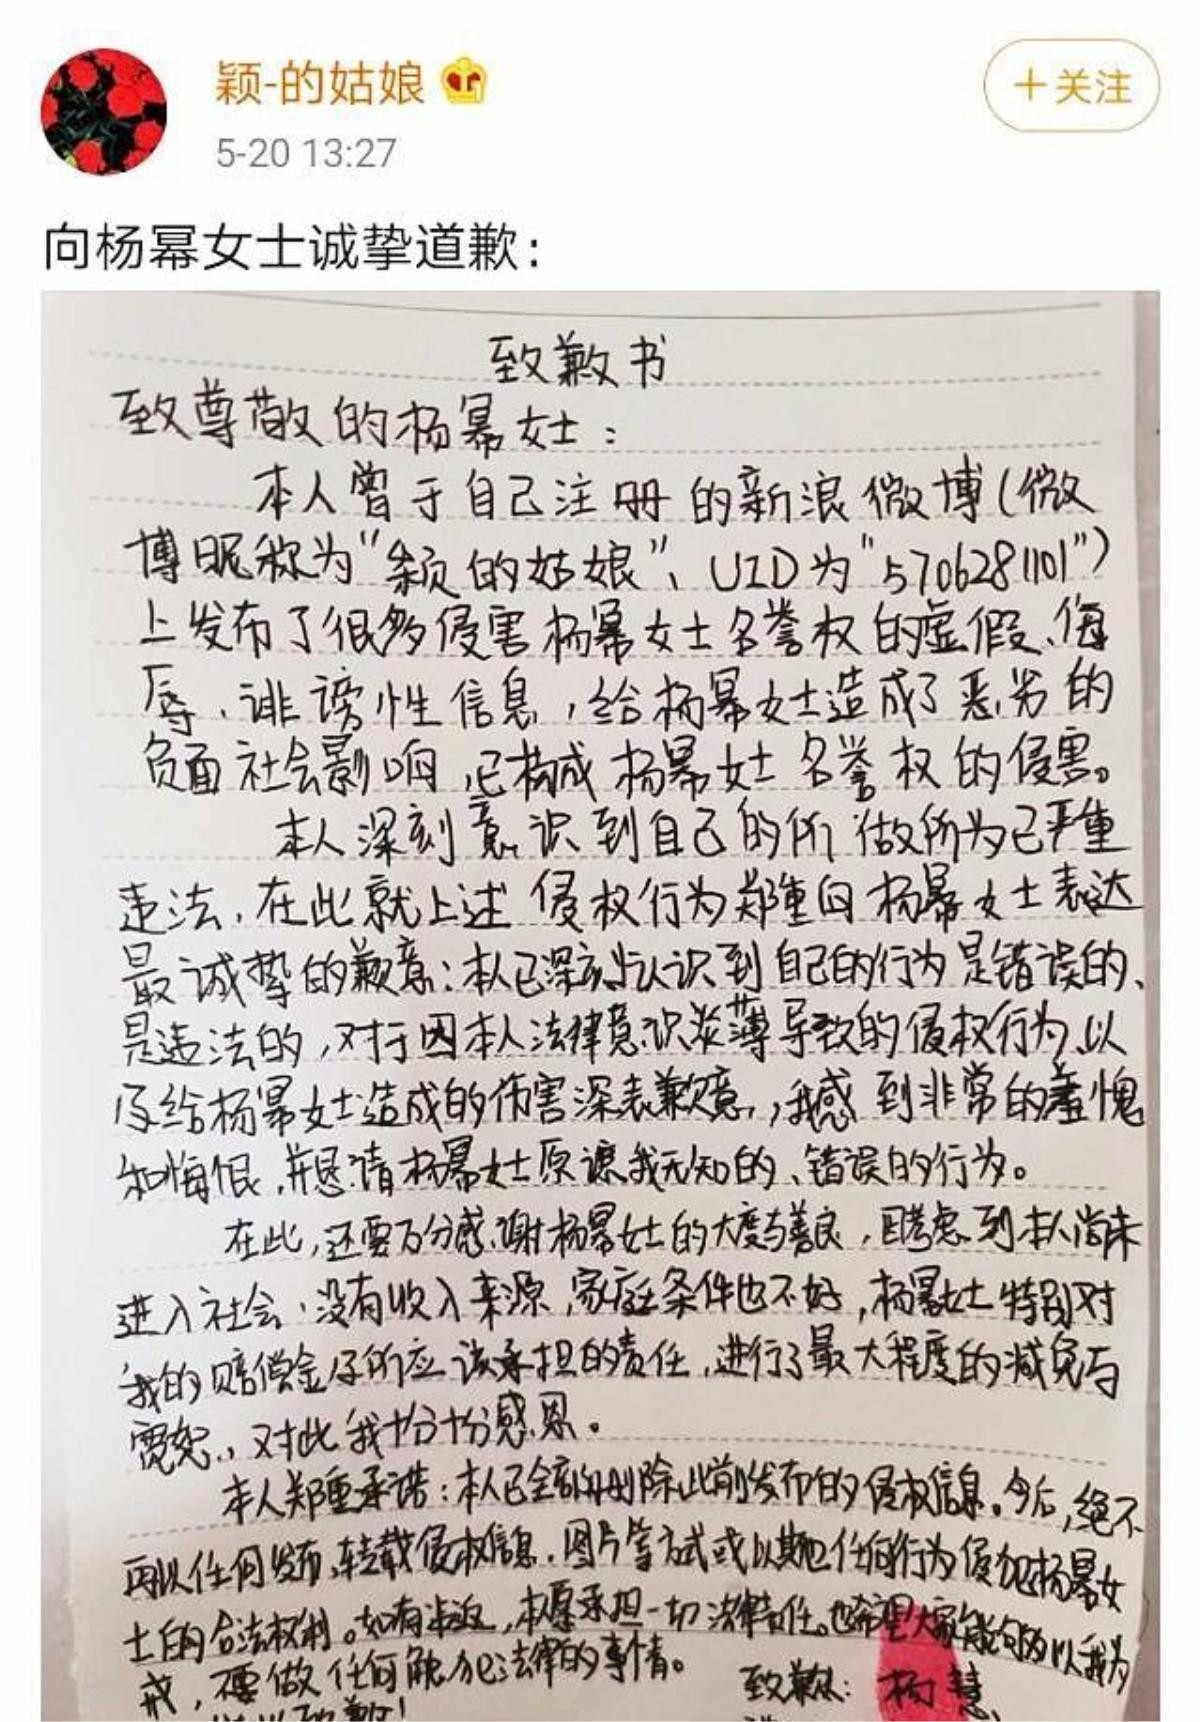 颖-的姑娘
5-20 13:27
+关注
向杨幂女士诚挚道歉：
致歉书
致尊敬的杨幂女士：
本人曾于自己注册的新浪微博（微
博昵称为“颖的姑娘”、UID为“5706281101”）
上发布了很多侵害杨幂女士名誉权的虚假、侮
辱、诽谤性信息，给杨幂女士造成了恶劣的
负面社会影响，已构成杨幂女士名誉权的侵害。
本人深刻意识到自己的所做所为已严重
违法，在此就上述侵权行为郑重向杨幂女士表达
最诚挚的歉意：本人已深刻认识到自己的行为是错误的、
是违法的，对于因本人法律意识淡薄导致的侵权行为以
及给杨幂女士造成的伤害深表歉意，我感到非常的羞愧
和悔恨，并恳请杨幂女士原谅我无知的、错误的行为。
在此，还要万分感谢杨幂女士的大度与善良，因考虑到本人尚未
进入社会，没有收入来源，家庭条件也不好，杨幂女士特别对
我的赔偿金及所应该承担的责任，进行了最大程度的减免与
宽恕，对此我十分十分感恩。
本人郑重承诺：本人已全部删除此前发布的侵权信息。今后，绝不
再以任何发布、转载侵权信息、图片等方式或以其他任何行为侵犯杨幂女
士的合法权利。如有违反，本人愿承担一切法律责任。也希望大家能够以我为
戒，不要做任何触犯法律的事情。
致歉人：杨慧